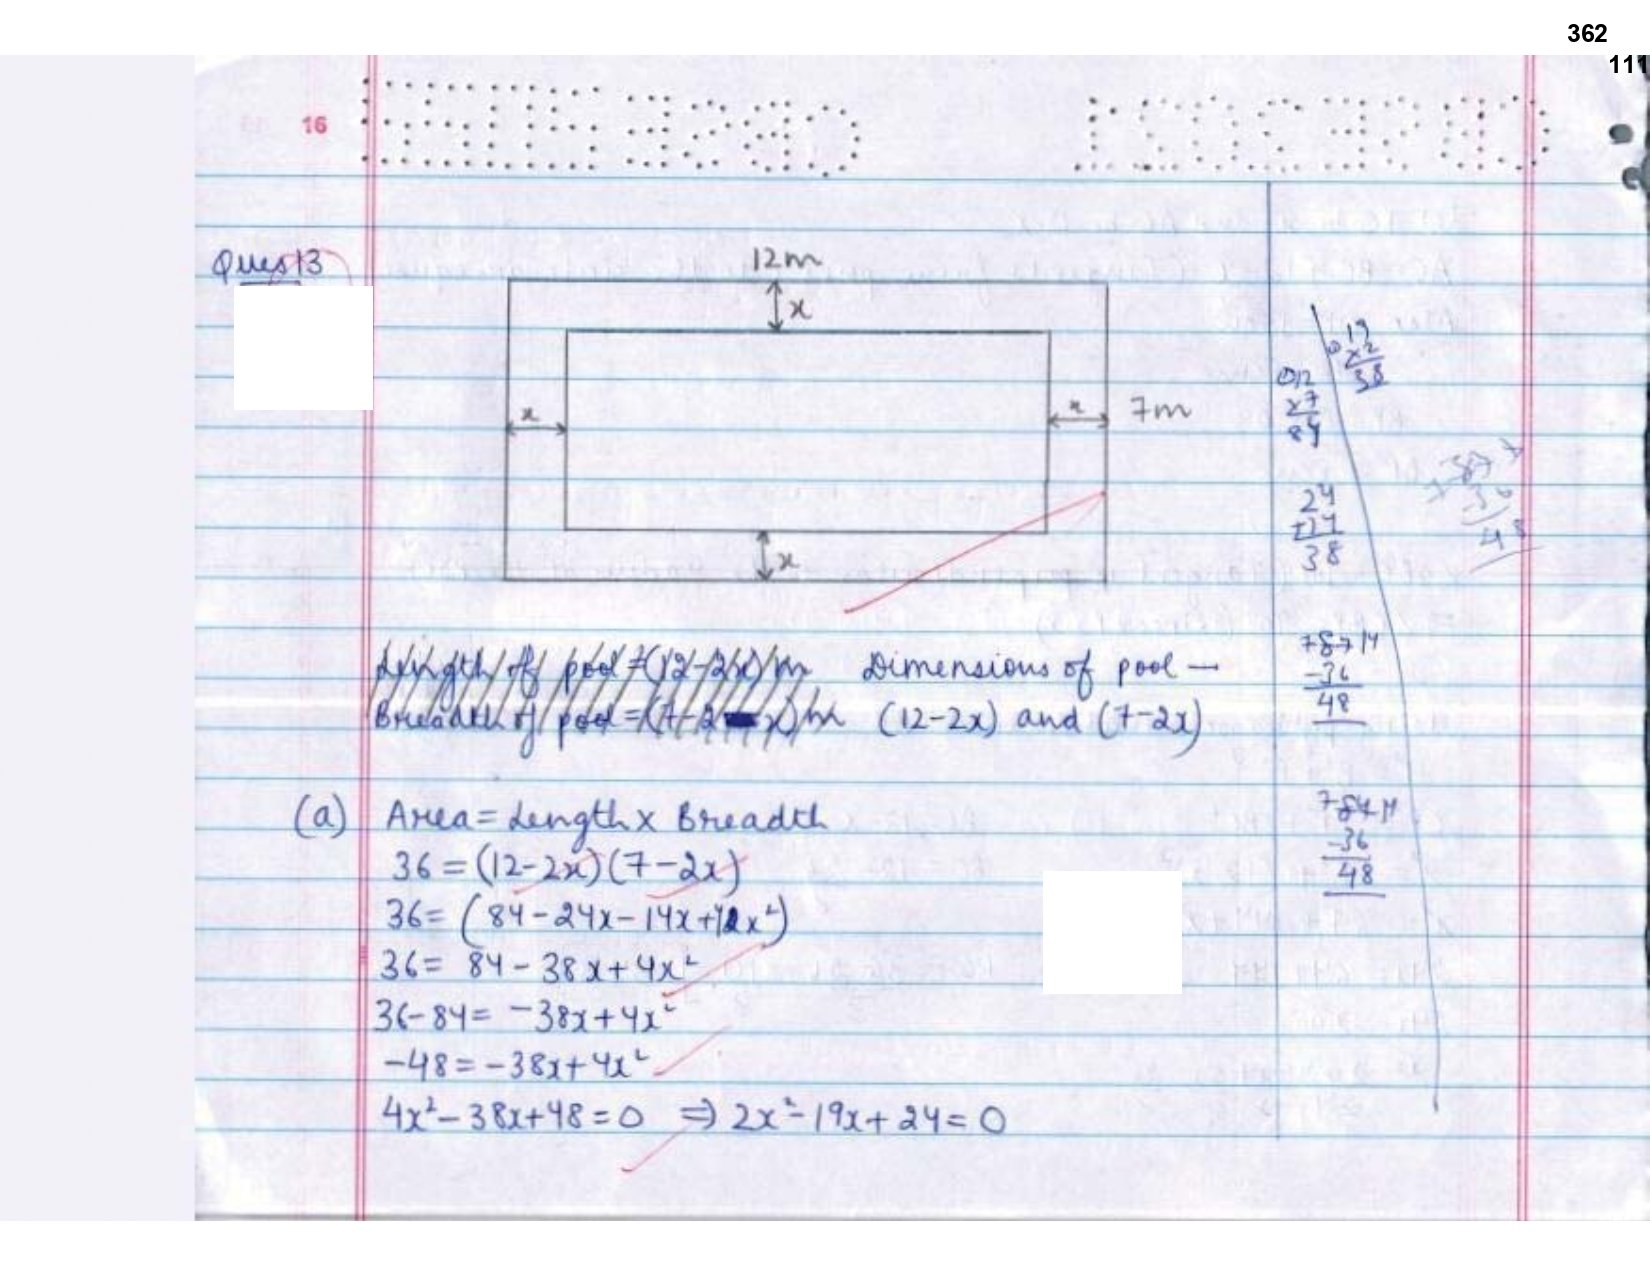 362
11
16
Ques13
12m
x
x
x
7m
x
Length of pool = (12-2x)m
Breadth of pool = (7-2 x)m
Dimensions of pool —
(12-2x) and (7-2x)
(a) Area = Length x Breadth
36 = (12-2x)(7-2x)
36 = (84-24x-14x+4x²)
36 = 84-38x+4x²
36-84 = -38x+4x²
-48 = -38x+4x²
4x²-38x+48=0 ⇒ 2x²-19x+24=0
19
x2
38
12
x7
84
24
+14
38
-36
48
-36
48
48